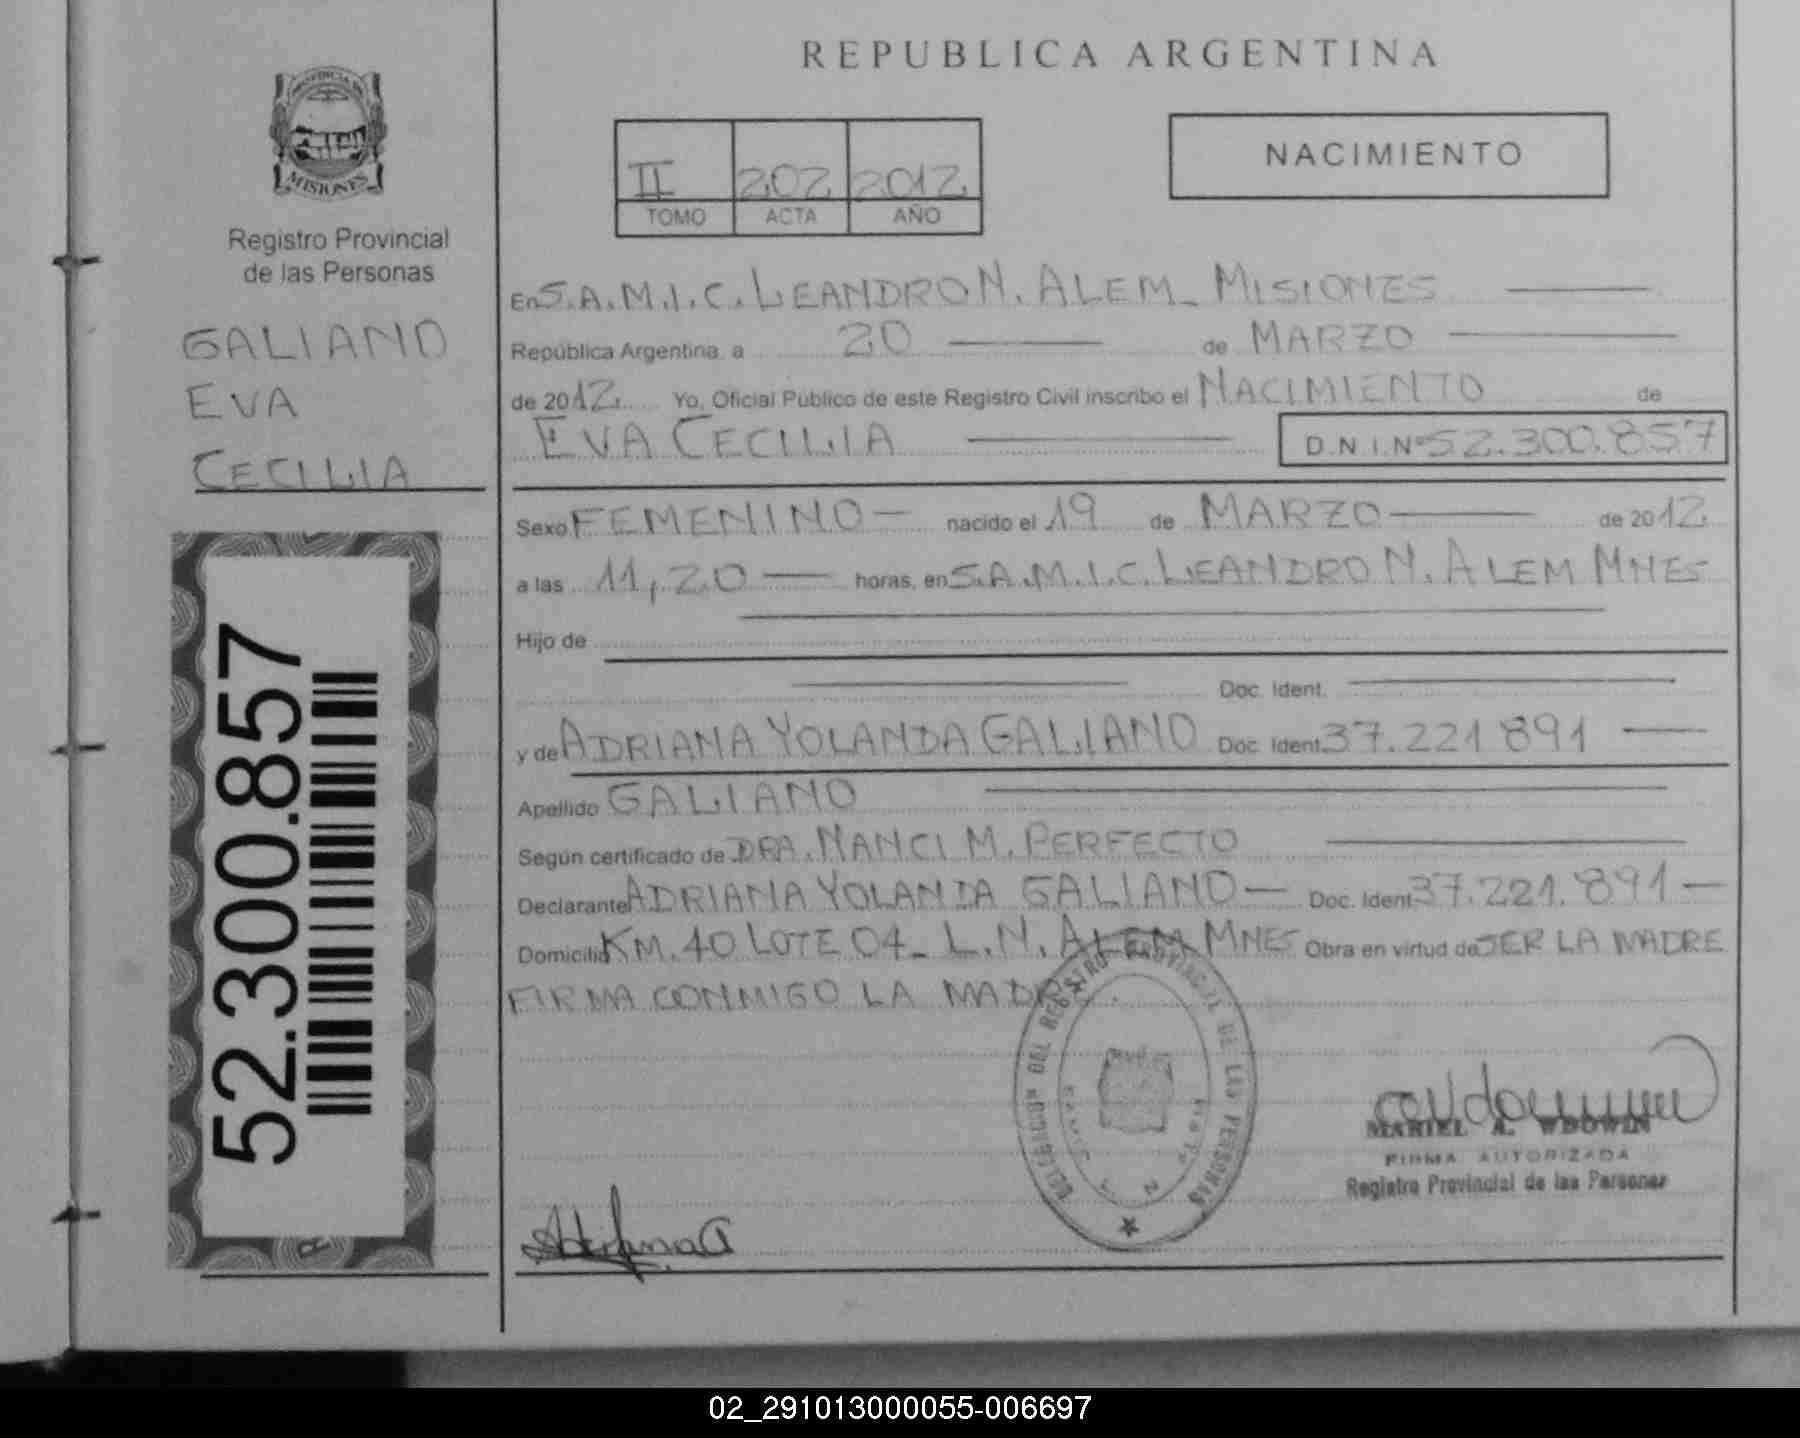 REPUBLICA ARGENTINA
PROVINCIA DE
MISIONES
Registro Provincial
de las Personas
GALIANO
EVA
CECILIA
52.300.857
II 202 2012
TOMO ACTA AÑO
NACIMIENTO
En S.A.M.I.C. LEANDRO N. ALEM_ MISIONES
República Argentina, a 20 de MARZO
de 2012. Yo, Oficial Público de este Registro Civil inscribo el NACIMIENTO de
EVA CECILIA D.N.I.Nº 52.300.857
Sexo FEMENINO nacido el 19 de MARZO de 2012
a las 11,20 horas, en S.A.M.I.C. LEANDRO N. ALEM MNES
Hijo de
Doc. Ident.
y de ADRIANA YOLANDA GALIANO Doc. Ident. 37.221 891
Apellido GALIANO
Según certificado de DRA. NANCI M. PERFECTO
Declarante ADRIANA YOLANDA GALIANO Doc. Ident. 37.221.891
Domicilio KM. 40 LOTE 04_ L.N. ALEM MNES Obra en virtud de SER LA MADRE
FIRMA CONMIGO LA MADRE.
DELEGACION DEL REGISTRO PROVINCIAL DE LAS PERSONAS
MARIEL A. WDOWIN
FIRMA AUTORIZADA
Registro Provincial de las Personas
Adriana G
02_291013000055-006697